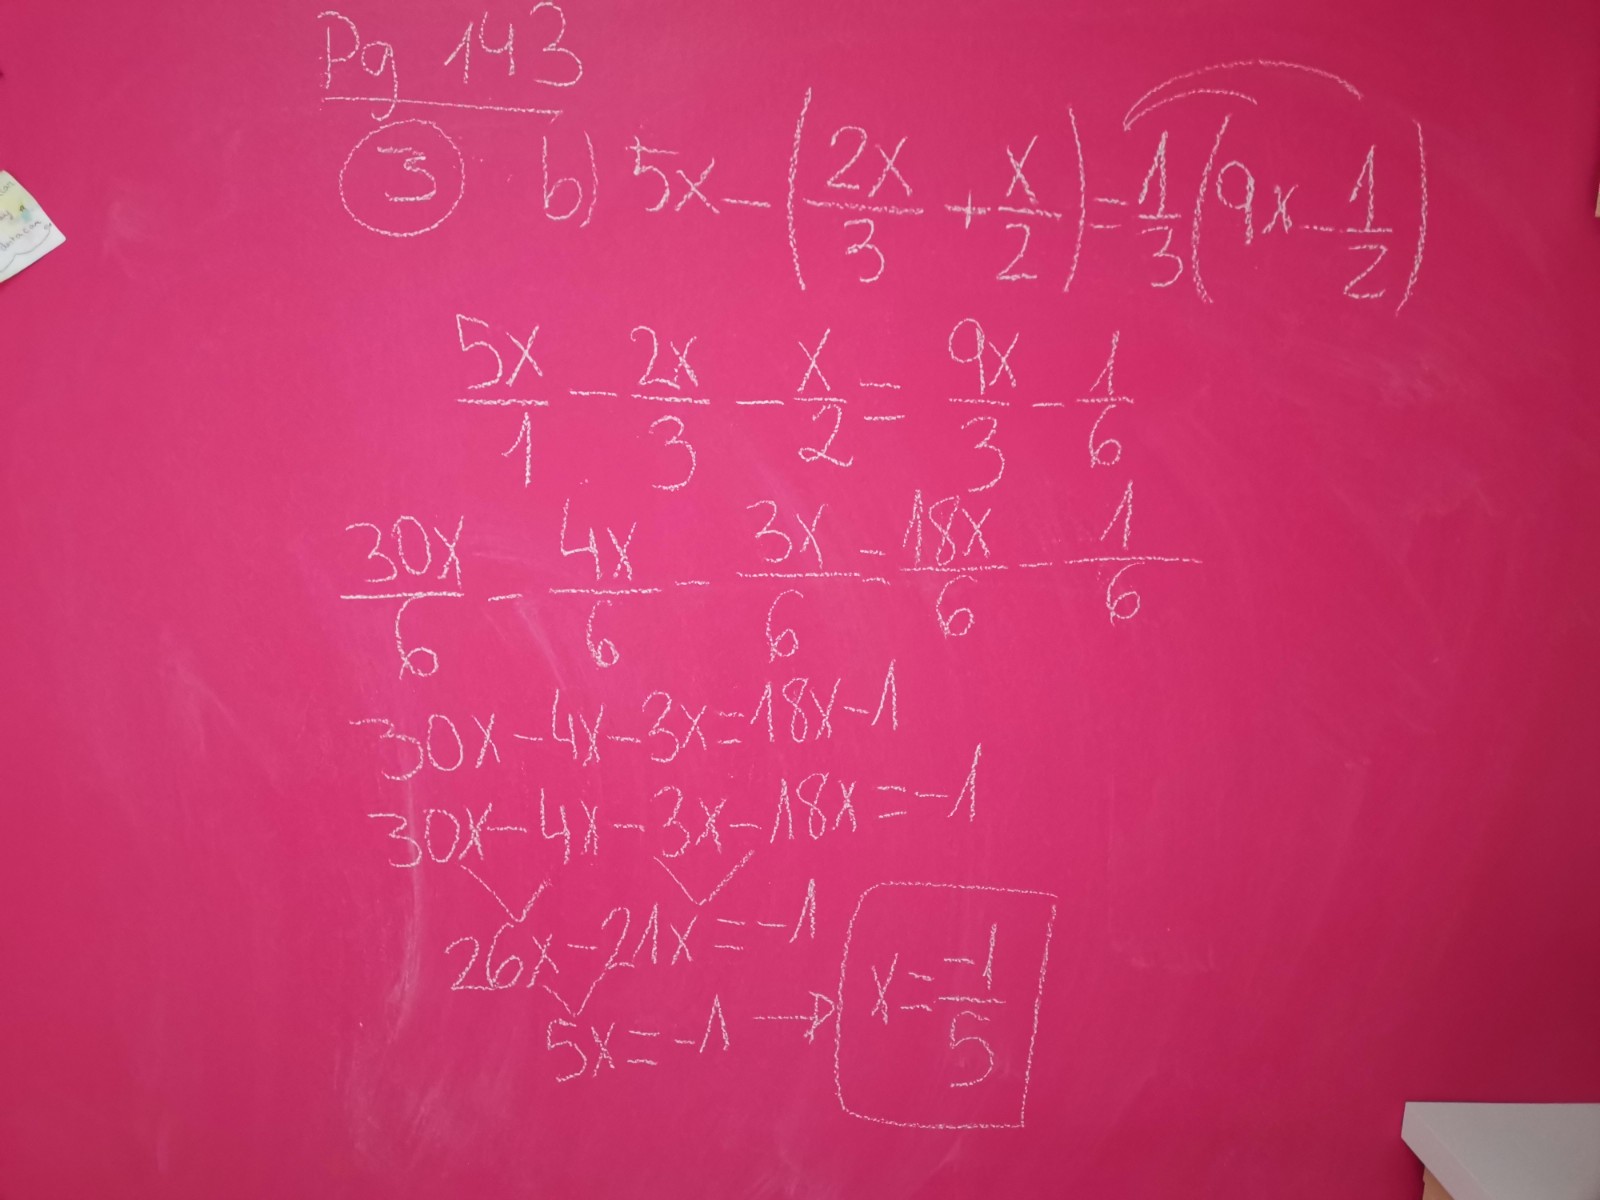 Pg 143
③ b) 5x - (2x/3 + x/2) = 1/3 (9x - 1/2)
5x/1 - 2x/3 - x/2 = 9x/3 - 1/6
30x/6 - 4x/6 - 3x/6 = 18x/6 - 1/6
30x - 4x - 3x = 18x - 1
30x - 4x - 3x - 18x = -1
26x - 21x = -1
5x = -1 → x = -1/5